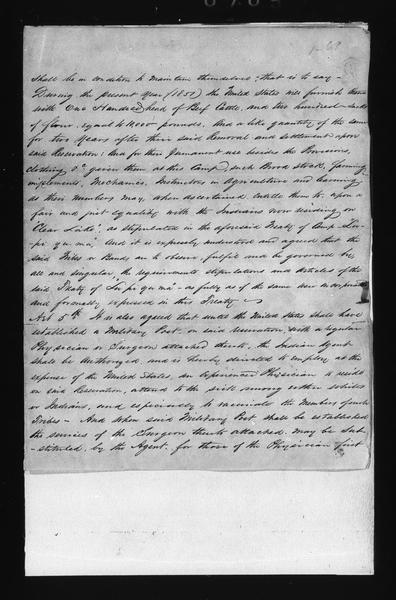 Shall be in condition to maintain themselves; that is to say –
During the present Year (1851) the United States will furnish them
with One Hundred head of Beef Cattle, and two hundred sacks
of flour, equal to 10000 pounds, And a like quantity of the same
for two Years after their said Removal and settlement upon
said Reservation; And for their permanent use besides the Provisions,
clothing &c given them at this Camp, such Brood stock, farming
implements, Mechanics, Instructors in Agriculture and learning
as their numbers may, when ascertained entitle them to, upon a
fair and just equality with the Indians now residing on
"Clear Lake", as stipulated in the aforesaid Treaty of Camp Lu-
pi yu ma" And it is expressly understood and agreed that the
said Tribes or Bands are to observe, fulfil and be governed by,
all and singular, the requirements stipulations and Articles of the
said Treaty of "Lu pi yu ma" – as fully as if the same were incorporated
and formally expressed in this Treaty
Art 5th It is also agreed that until the United States shall have
established a Military Post on said reservation, with a regular
Physician or Surgeon attached thereto, the Indian Agent
shall be Authorized, and is hereby directed to employ at the
expense of the United States, an Experienced Physician to reside
on said Reservation, attend to the sick among either whites
or Indians, and especially to vaccinate the Members of said
Tribes – And when said Military Post shall be established
the services of the Surgeon thereto attached, may be Sub-
-stituted, by the Agent, for those of the Physician first